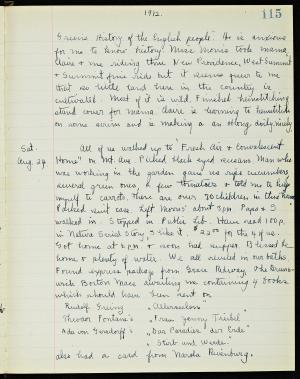 1912. 115
Greens History of the English people". He is anxious
for me to know history. Miss Morris took mama,
Claire & me riding thru New Providence, West Summit
& Summit fine ride but it seems queer to me
that so little land here in the country is
cultivated. Most of it is wild. Finished hemstitching
stand cover for mama. Claire is learning to hemstitch
on some scrim and is making a
Sat. All of us walked up to "Fresh Air & Convalescent
Aug. 24 Home" on Mt. Ave. Picked black eyed susans. Man who
was working in the garden gave us ripe cucumbers
several green ones, a few tomatoes & told me to help
myself to carrots. There are over 70 children in this home
Packed suit case. Left Morris' about 3 P.M. Papa &
walked in. Stopped in Public Lib. Have read 100 p.
in Nature Series Story, I like it. $22.00 for the 4 of us.
Got home at 6 P.M. & soon had supper. Blessed be
home & plenty of water. We all reveled in our baths.
Found express package from Grace
wick Boston Mass awaiting me containing 4 books
which should have been sent on
Rudolf Greinz "Allerseelen"
Theodor Fontane's "Frau Jenny Treibel"
Ada von Gersdorff's "Das Paradies der Erde"
" Stirb und Werde"
also had a card from Narola Rivenburg.